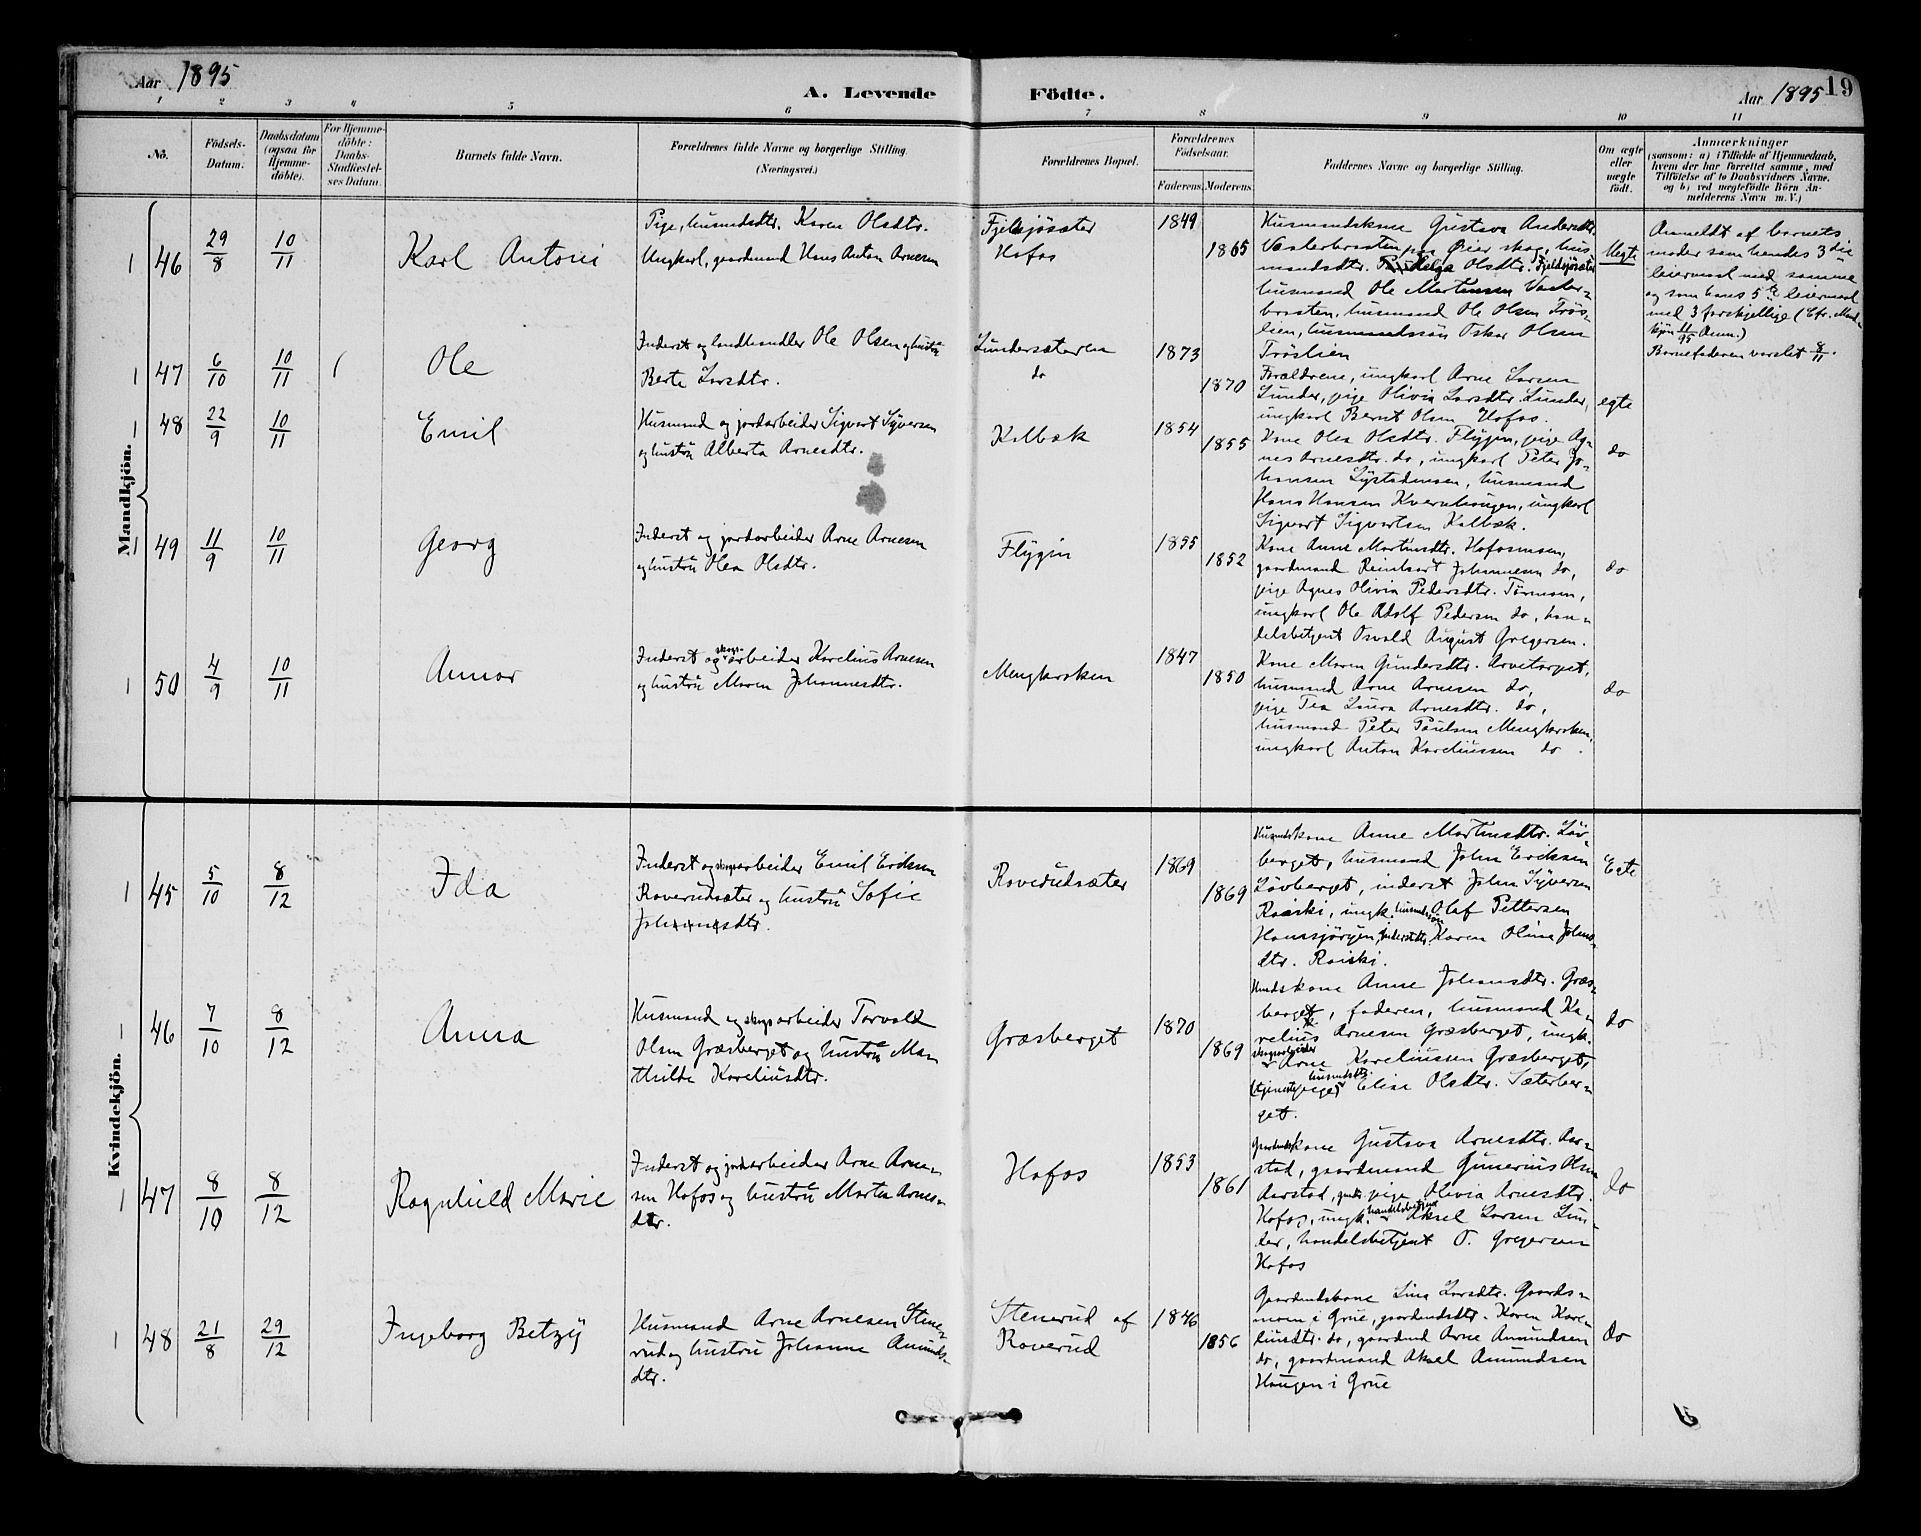 Aar 1895
A. Levende Födte.
Aar 1895
19
1 2 3 4 5 6 7 8 9 10 11
No.
Födsels-
Datum.
Daabsdatum
(ogsaa for
Hjemme-
döbte).
For Hjemme-
döbte:
Daabs-
Stadfæstel-
ses Datum.
Barnets fulde Navn.
Forældrenes fulde Navne og borgerlige Stilling.
(Næringsvei.)
Forældrenes Bopæl.
Forældrenes
Födselsaar.
Faderens. Moderens.
Faddernes Navne og borgerlige Stilling.
Om ægte
eller
uægte
födt.
Anmærkninger
(saasom: a) i Tilfælde af Hjemmedaab,
hvem der har forrettet samme, med
Tilföielse af to Daabsvidners Navne.
og b) ved uægtefödte Börn An-
melderens Navn m. V.)
Mandkjön.
1 46 29/8 10/11 Karl Antoni
Pige, husmdsdtr. Karen Olsdtr.
Ungkarl, gaardmand Hans Anton Arnesen
Fjeldsjösæter
Hofos
1849
1865
Husmandskone Gustava Andersdtr.
Vasterbrosten Öier skog, hus-
mandsdtr. Helga Olsdtr. Fjeldsjösæter
husmand Ole Martinsen Vaster-
brosten, husmand Ole Olsen Trös-
lien, husmandssön Oskar Olsen
Tröslien
Uegte
Anmeldt af barnets
moder som hendes 3die
leiermaal med samme
og som hans 5te leiermaal
med 3 forskjellige (Cfr. Mand-
kjön 11/95 Anm.)
Barnefaderen varslet 8/11.
1 47 6/10 10/11 1 Ole
Inderst og landhandler Ole Olsen og hustru
Berte Larsdtr.
Lundersæteren
do
1873
1870
Forældrene, ungkarl Arne Larsen
Lunder, pige Olivia Larsdtr. Lunder,
ungkarl Bernt Olsen Hofos.
egte
1 48 22/9 10/11 Emil
Husmand og jordarbeider Sigvart Syversen
og hustru Alberta Arnesdtr.
Kolbæk
1854
1855
Kone Olea Olsdtr. Flygin, pige Ag-
nes Arnesdtr. do, ungkarl Peter Jo-
hansen Lystadmoen, husmand
Hans Hansen Kvernhaugen, ungkarl
Sigvart Sigvartsen Kolbæk.
do
1 49 11/9 10/11 Georg
Inderst og jordarbeider Arne Arnesen
og hustru Olea Olsdtr.
Flygin
1855
1852
Kone Anne Martinsdtr. Hofosmoen,
gaardmand Reinhart Johannesen do,
pige Agnes Olivia Pedersdtr. Törmoen,
ungkarl Ole Adolf Pedersen do, han-
delsbetjent Osvald August Gregersen.
do
1 50 4/9 10/11 Annar
Inderst og skogsarbeider Karelius Arnesen
og hustru Maren Johannesdtr.
Mengkroken
1847
1850
Kone Maren Gundersdtr. Arvitorpet,
husmand Arne Arnesen do,
pige Tea Laura Arnesdtr. do,
husmand Peter Paulsen Mengkroken,
ungkarl Anton Kareliussen do.
do
Kvindekjön.
1 45 5/10 8/12 Ida
Inderst og skogsarbeider Emil Eriksen
Roverudsæter og hustru Sofie
Johannesdtr.
Roverudsæter
1869
1869
Husmdskone Anne Martinsdtr. Löv-
berget, husmand John Eriksen
Lövberget, inderst Johan Syversen
Roiski, ungk. husmdssön Olaf Pettersen
Hansjörgen, inderstdtr. Karen Oline Johns-
dtr. Roiski.
Egte
1 46 7/10 8/12 Anna
Husmand og skogsarbeider Torvald
Olsen Græsberget og hustru Ma-
thilde Kareliusdtr.
Græsberget
1870
1869
Husmdskone Anne Johansdtr. Græs-
berget, faderen, husmand Ka-
relius Arnesen Græsberget, ungk.
skogsarbeider Arne Kareliussen Græsberget,
(tjenestepige) husmdsdtr. Elise Olsdtr. Sæterber-
get.
do
1 47 8/10 8/12 Ragnhild Marie
Inderst og jordarbeider Arne Arne-
sen Hofos og hustru Martea Arnes-
dtr.
Hofos
1853
1861
Gaardmdskone Gustava Arnesdtr. Aar-
stad, gaardmand Gunerius Olsen
Aarstad, gmds. pige Olivia Arnesdtr.
Hofos, ungk. handelsbetjent Aksel Larsen Lun-
der, handelsbetjent O. Gregersen
Hofos
do
1 48 21/8 29/12 Ingeborg Betzy
Husmand Arne Arnesen Stene-
rud og hustru Johanne Amunds-
dtr.
Stenerud af
Roverud
1846
1856
Gaardmdskone Lina Larsdtr. Gaards-
moen i Grue, gaardmdsdtr. Karen Kare-
liusdtr. do, gaardmd Arne Amundsen
do, gaardmand Aksel Amundsen
Haugen i Grue
do